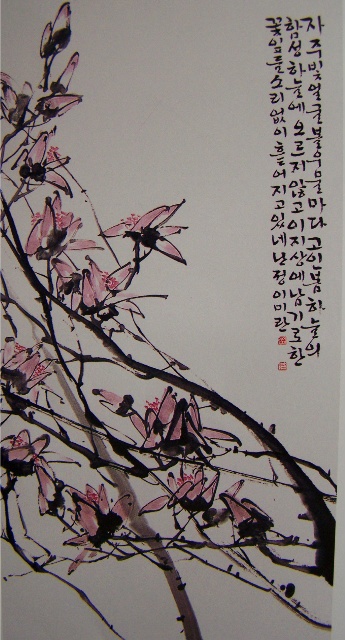 자주빛얼굴볼우물마다고인봄하늘의
함성하늘에오르지않고이지상에남기로한
꽃잎들소리없이흩어지고있네난정이미란